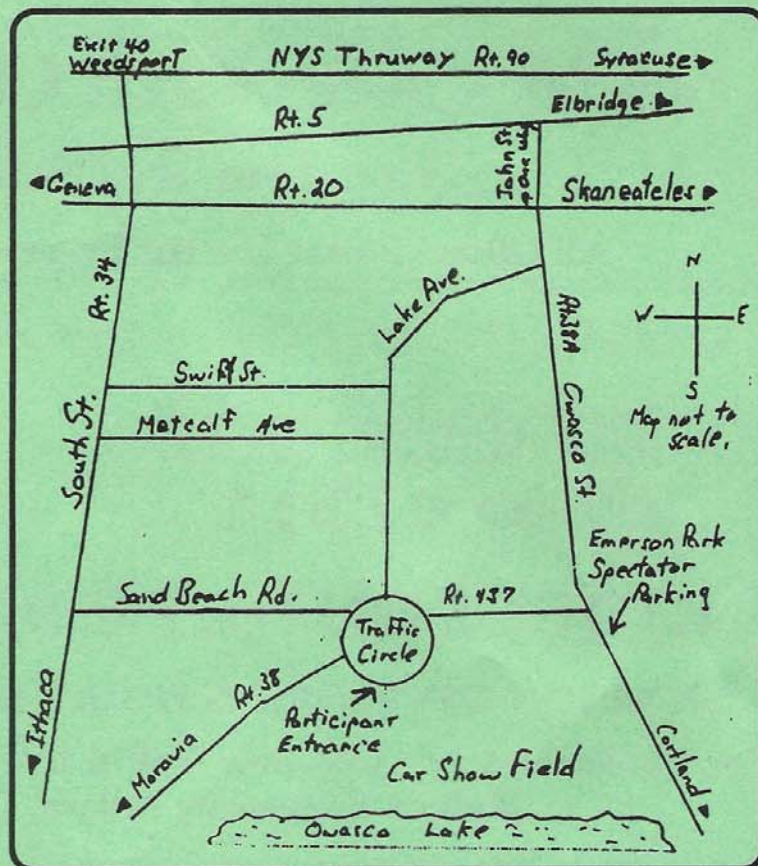 Exit 40
Weedsport
NYS Thruway Rt. 90
Syracuse
Rt. 5
Elbridge
John St.
One Way
Geneva
Rt. 20
Skaneateles
Rt. 34
South St.
Lake Ave.
Rt. 38A Owasco St.
N
W
E
S
Map not to
scale.
Swift St.
Metcalf Ave
Emerson Park
Spectator
Parking
Sand Beach Rd.
Rt. 437
Traffic
Circle
Rt. 38
Participant
Entrance
Ithaca
Moravia
Car Show Field
Cortland
Owasco Lake